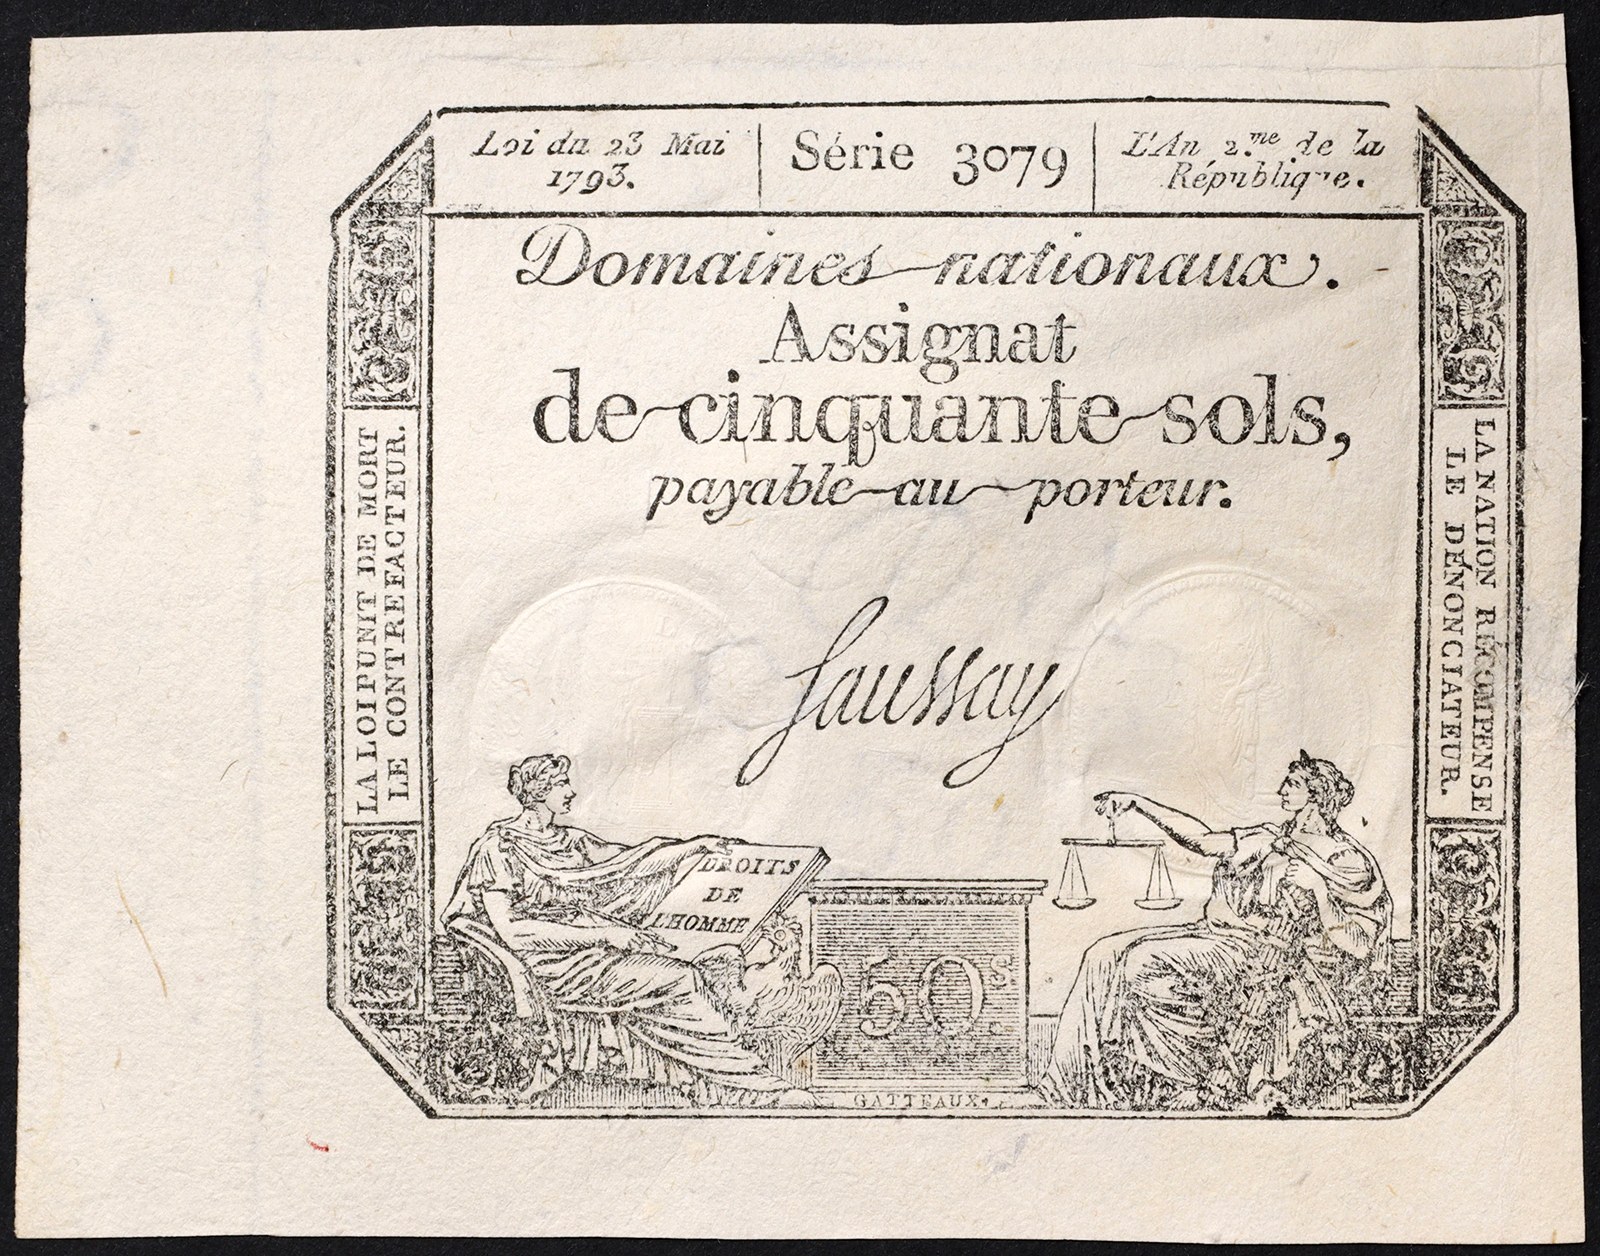 Loi du 23 Mai
1793.
Série 3079
L'An 2.me de la
République.
Domaines nationaux.
Assignat
de cinquante sols,
payable au porteur.
Saussay
LA LOI PUNIT DE MORT
LE CONTREFACTEUR.
LA NATION RÉCOMPENSE
LE DÉNONCIATEUR.
DROITS
DE
L'HOMME
50S.
GATTEAUX.